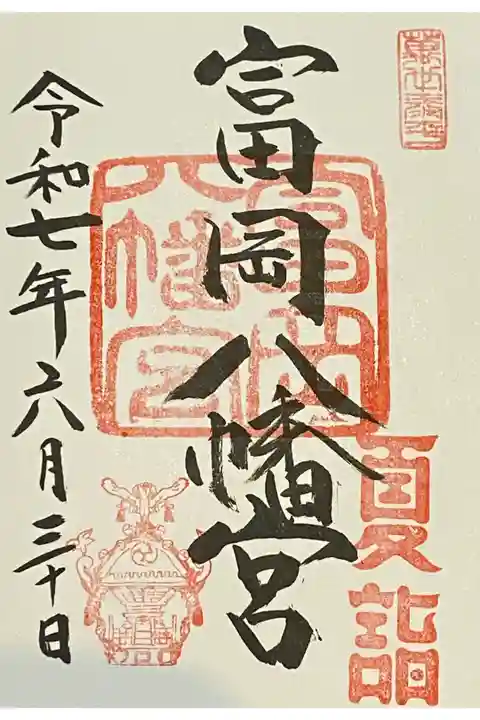 夏詣
富岡八幡宮
富岡
八幡宮
令和七年六月三十日